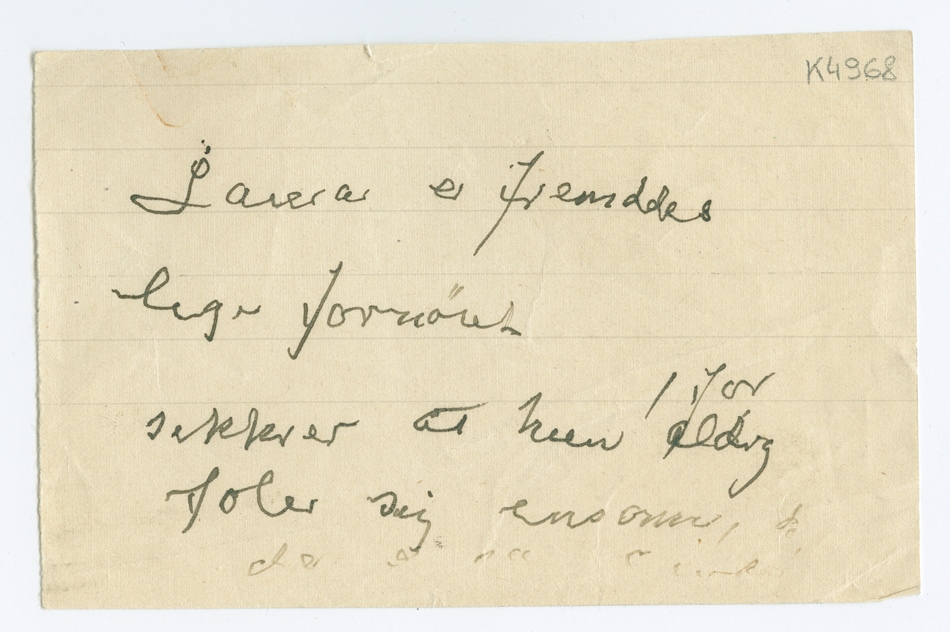 K4968
Laura er fremdeles
lige fornöiet
/ for
sikkrer at hun aldrig
foler sig ensom,